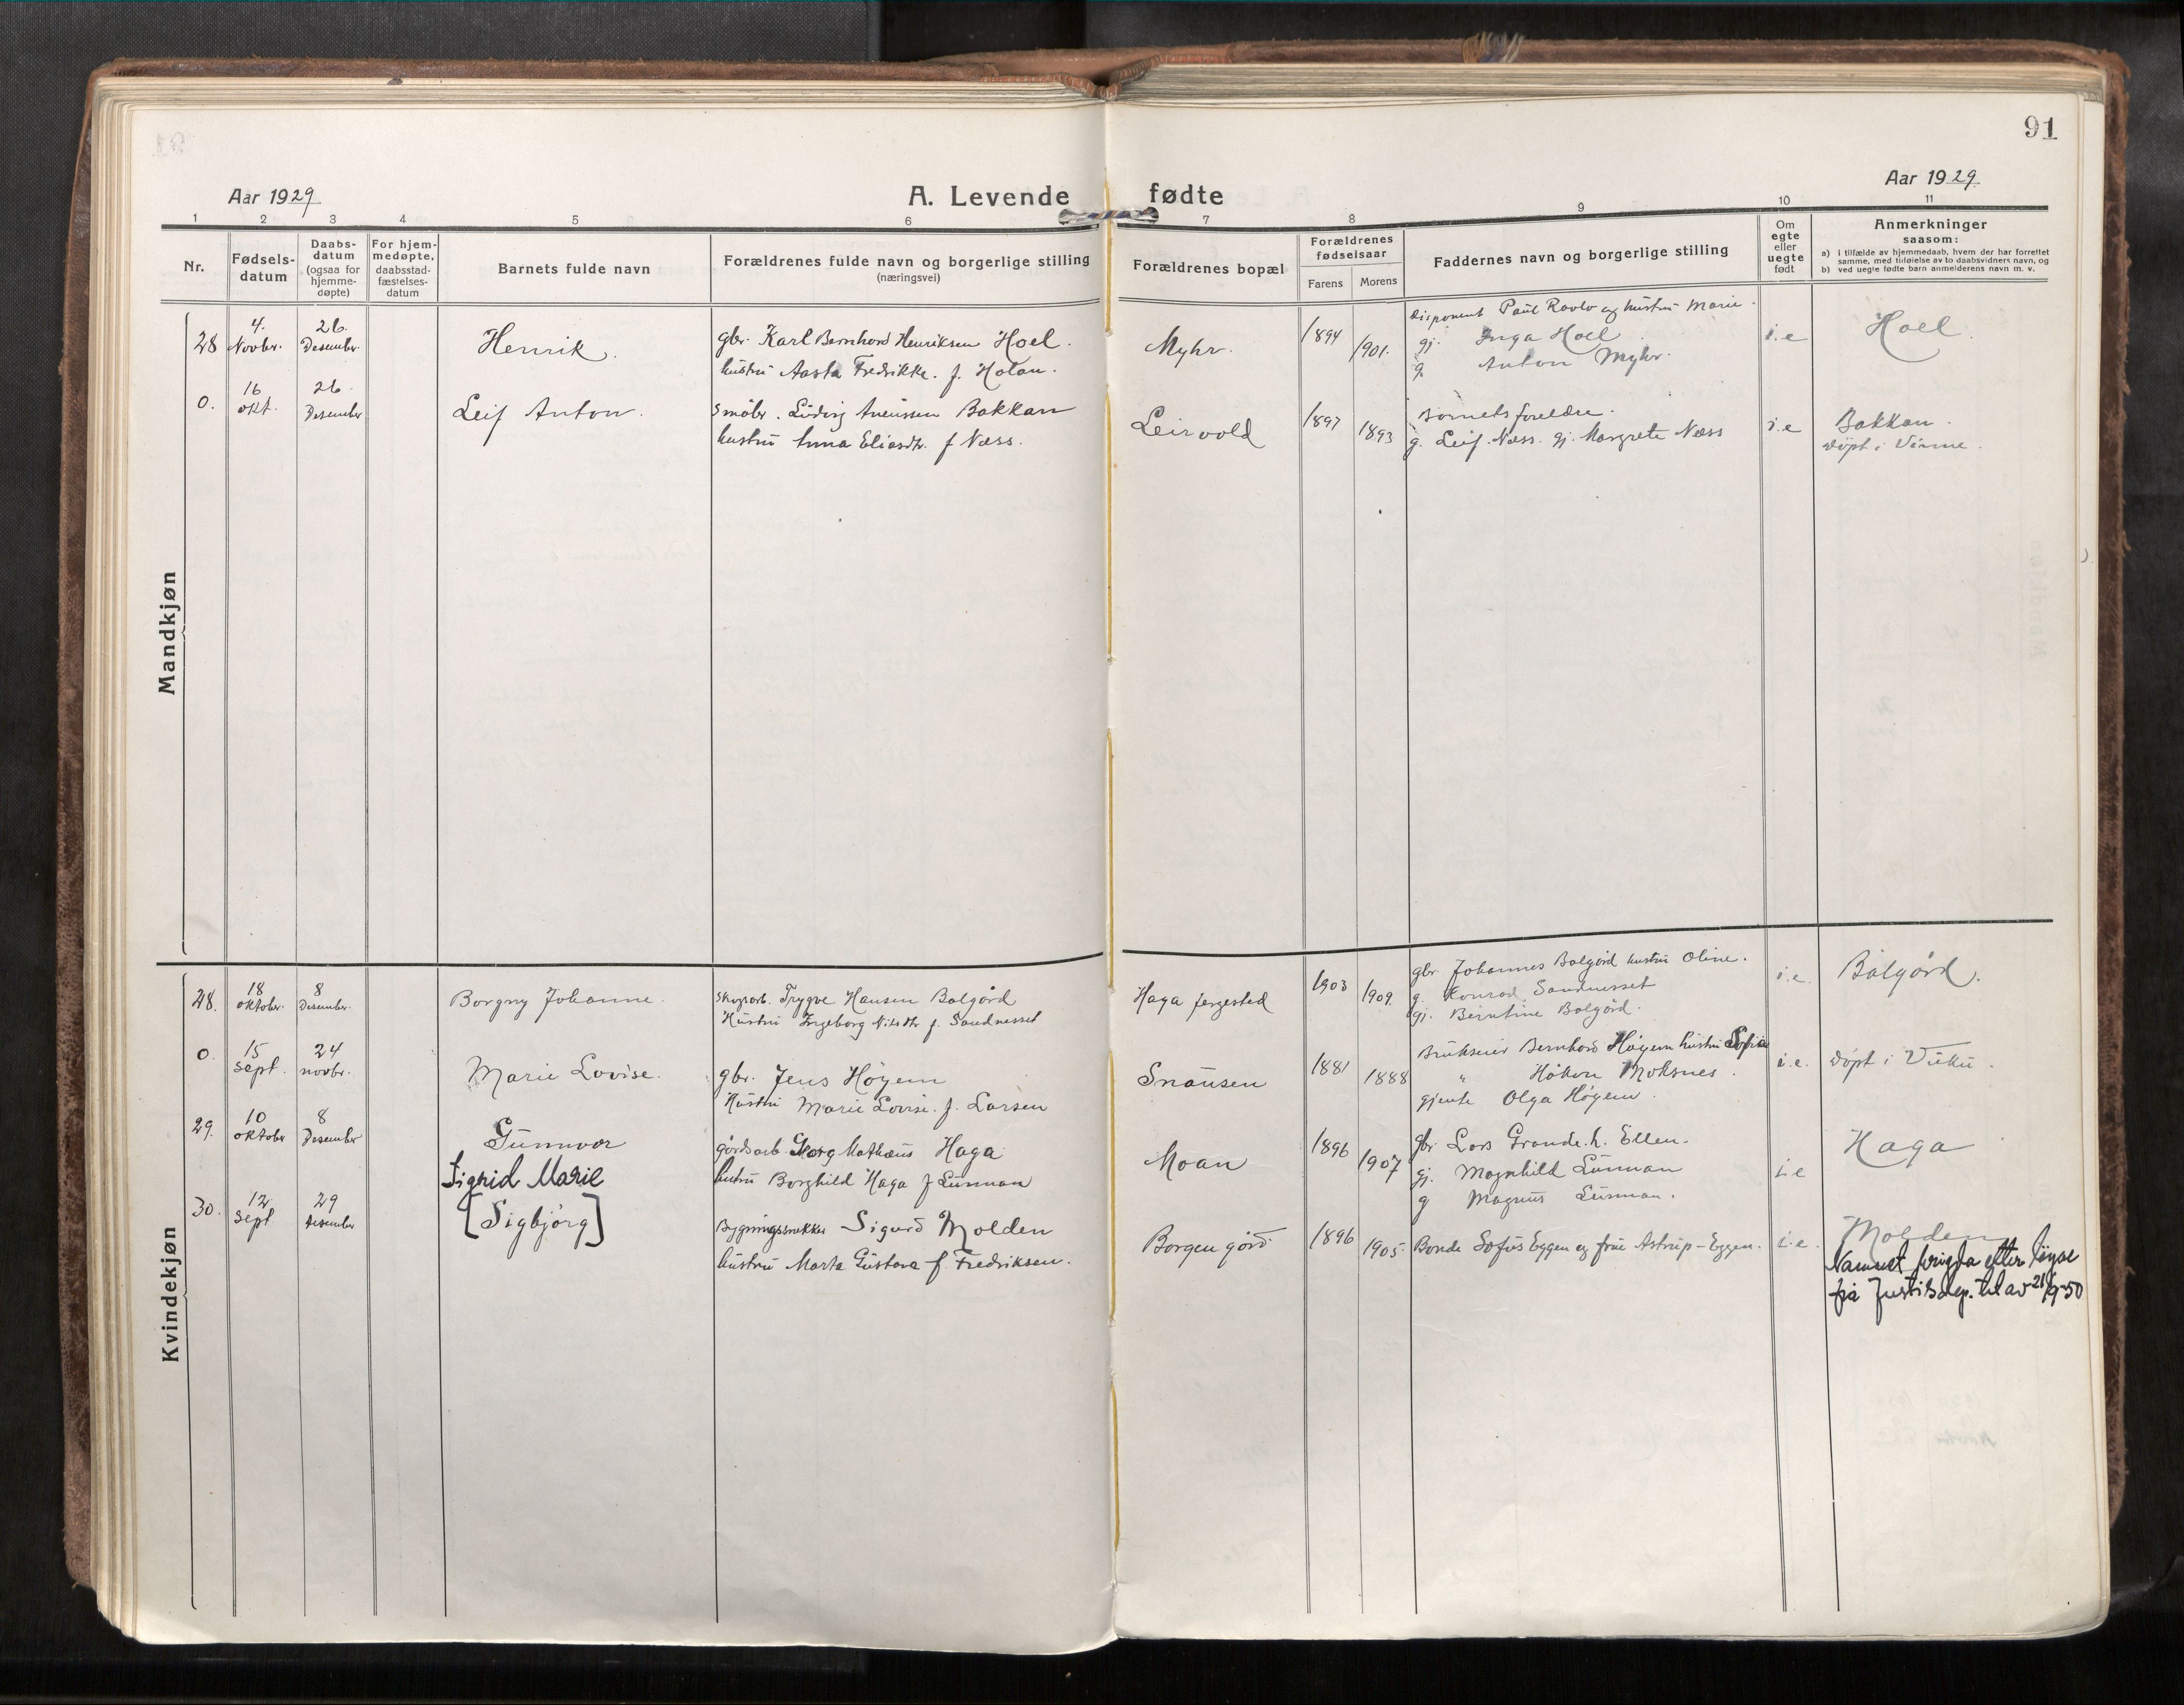 91
Aar 1929.
A. Levende fødte
Aar 1929.
1 2 3 4 5 6 7 8 9 10 11
Nr.
Fødsels-
datum
Daabs-
datum
(ogsaa for
hjemme-
døpte)
For hjem-
medøpte,
daabsstad-
fæstelses-
datum
Barnets fulde navn
Forældrenes fulde navn og borgerlige stilling
(næringsvei)
Forældrenes bopæl
Forældrenes
fødselsaar
Farens Morens
Faddernes navn og borgerlige stilling
Om
egte
eller
uegte
født
Anmerkninger
saasom:
a) i tilfælde av hjemmedaab, hvem der har forrettet
samme, med tilføielse av to daabsvidners navn, og
b) ved uegte fødte barn anmelderens navn m. v.
Mandkjøn
28
4.
Novbr.
26.
Desember
Henrik.
gbr. Karl Bernhard Henriksen Hoel.
hustru Aasta Fredrikke. f. Holan.
Myhr.
1894
1901.
Disponent Paul Ravlo og hustru Marie.
gj. Inga Hoel
g. Anton Myhr.
i.e
Hoel.
0.
16
okt.
26.
Desember
Leif Anton.
Småbr. Ludvig Bakkan
hustru Anna Eliasdtr. f Næss.
Leirvold
1897
1893
Barnets foreldre.
g. Leif Næss. gj. Margrete Næss
i.e
Bakkan.
døpt i Vinne.
Kvindekjøn
28.
18
oktober.
8
Desember.
Borgny Johanne.
Trygve Hansen Balgård
Hustru Ingeborg Nilsdtr f. Sandnesset
Haga fergested
1903
1909.
gbr. Johannes Balgård hustru Oline.
g. Konrad Sandnesset
gj. Berntine Balgård.
i.e.
Balgård.
0.
15
sept.
24
novbr.
Marie Lovise.
gbr. Jens Høyem
Hustru Marie Lovise. f. Larsen
Snausen
1881
1888
Brukseier Bernhard Høyem hustru Sofie
" Håkon Moksnes.
gjente Olga Høyem.
i.e.
døpt i Vuku.
29.
10
oktober
8
Desember
Gunnvor
gårdsarb. Georg Mathæus Haga
hustru Borghild Haga f Lunnan
Moan
1896
1907
gbr Lars Grande. h. Ellen.
gj. Magnhild Lunnan
g Magnus Lunnan.
i.e
Haga
30.
12
sept
29
desember
Sigrid Marie
[Sigbjørg]
Bygningssnekker Sigurd Molden
hustru Marta Gustava f Fredriksen.
Borgen gård.
1896
1905.
Bonde Sofus Eggen og frue Astrup-Eggen.
i.e.
Molden
Namnet brigda etter løyve
frå Justisdep. av 21/9-50